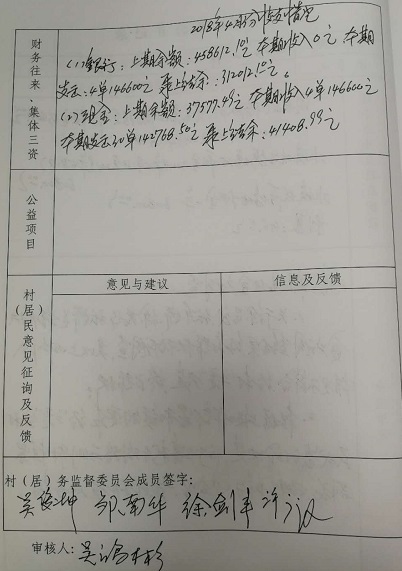 2018年4月份收支情况
财务往来、集体三资
(1)银行:上期余额:458612.10元 本期收入0元 本期
支出:4单146600元 累上结余:312012.10元。
(2)现金:上期余额:37577.49元 本期收入4单146600元
本期支出30单142768.50元 累上结余:41408.99元
公益项目
村(居)民意见征询及反馈
意见与建议
信息及反馈
村(居)务监督委员会成员签字:
邹南华 徐剑丰
审核人:吴